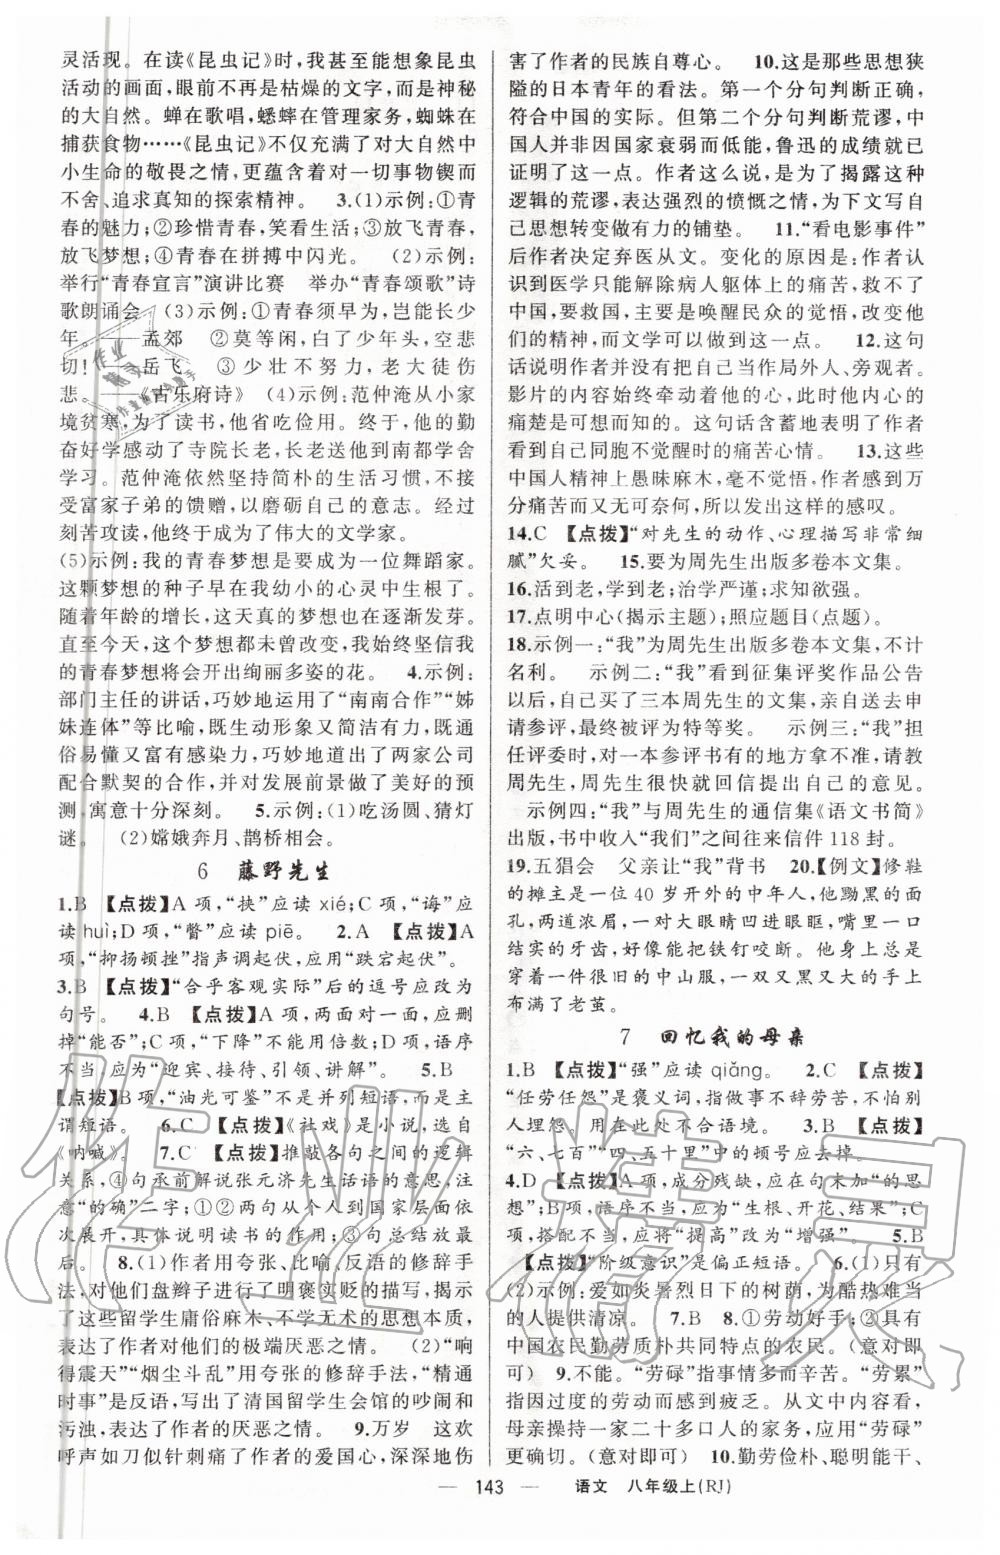 灵活现。在读《昆虫记》时,我甚至能想象昆虫
活动的画面,眼前不再是枯燥的文字,而是神秘
的大自然。蝉在歌唱,蟋蟀在管理家务,蜘蛛在
捕获食物……《昆虫记》不仅充满了对大自然中
小生命的敬畏之情,更蕴含着对一切事物锲而
不舍、追求真知的探索精神。 3.(1)示例:①青
春的魅力;②珍惜青春,笑看生活;③青春无敌,
放飞梦想;④青春在拼搏中闪光。 (2)示例:
举行“青春宣言”演讲比赛 举办“青春颂歌”诗
歌朗诵会 (3)示例:①青春须早为,岂能长少
年。——孟郊 ②莫等闲,白了少年头,空悲
切!——岳飞 ③少壮不努力,老大徒伤
悲。——《古乐府诗》 (4)示例:范仲淹从小家
境贫寒,为了读书,他省吃俭用。终于,他的勤
奋好学感动了寺院长老,长老送他到南都学舍
学习。范仲淹依然坚持简朴的生活习惯,不接
受富家子弟的馈赠,以磨砺自己的意志。经过
刻苦攻读,他终于成为了伟大的文学家。
(5)示例:我的青春梦想是要成为一位舞蹈家。
这颗梦想的种子早在我幼小的心灵中萌生。
随着年龄的增长,这天真的梦想也在逐渐发芽。
直至今天,这个梦想都未曾改变,我始终坚信我
的青春梦想将会开出绚丽多姿的花。 4.示例:
部门主任的讲话,巧妙地运用了“南南合作”“姊
妹连体”等比喻,既生动形象又简洁有力,既通
俗易懂又富有感染力,巧妙地道出了两家公司
配合默契的合作,并对发展前景做了美好的预
测,寓意十分深刻。 5.示例:(1)吃汤圆、猜灯
谜。 (2)嫦娥奔月、鹊桥相会。
6 藤野先生
1.B 【点拨】A项,“挟”应读 xié;C项,“诲”应
读huì;D项,“瞥”应读 piē。 2.A 【点拨】A
项,“抑扬顿挫”指声调起伏,应用“跌宕起伏”。
3.B 【点拨】“合乎客观实际”后的逗号应改为
句号。 4.B 【点拨】A项,两面对一面,应删
掉“能否”;C项,“下降”不能用倍数;D项,语序
不当,应为“迎宾、接待、引领、讲解”。 5.B
【点拨】B项,“油光可鉴”不是并列短语,而是主
谓短语。 6.C 【点拨】《社戏》是小说,选自
《呐喊》。 7.C 【点拨】推敲各句之间的逻辑
关系,④句承前解说张元济先生话语的意思,注
意“的确”二字;①②两句从个人到国家层面依
次展开,具体说明读书的作用;③句总结放最后。
8.(1)作者用夸张、比喻、反语的修辞手法,
对他们盘辫子进行了明褒实贬的描写,揭示
了这些留学生庸俗麻木、不学无术的思想本质,
表达了作者对他们的极端厌恶之情。 (2)“响
得震天”“烟尘斗乱”用夸张的修辞手法,“精通
时事”是反语,写出了清国留学生会馆的吵闹和
污浊,表达了作者的厌恶之情。 9.万岁 这欢
呼声如刀似针刺痛了作者的爱国心,深深地伤
害了作者的民族自尊心。 10.这是那些思想狭
隘的日本青年的看法。第一个分句判断正确,
符合中国的实际。但第二个分句判断荒谬,中
国人并非因国家衰弱而低能,鲁迅的成绩就已
证明了这一点。作者这么说,是为了揭露这种
逻辑的荒谬,表达强烈的愤慨之情,为下文写自
己思想转变做有力的铺垫。 11.“看电影事件”
后作者决定弃医从文。变化的原因是:作者认
识到医学只能解除病人躯体上的痛苦,要救
中国,首要的是唤醒民众的觉悟,改变他
们的精神,而文学可以做到这一点。 12.这句
话说明作者并未把自己当作局外人、旁观者。
影片的内容始终牵动着他的心,此时他内心的
痛楚是可想而知的。这句话含蓄地表明了作者
看到自己同胞不觉醒时的痛苦心情。 13.这些
中国人精神上愚昧麻木,毫不觉悟,作者对此万
分痛苦而又无可奈何,所以发出这样的感叹。
14.C 【点拨】“对先生的动作、心理描写非常细
腻”欠妥。 15.要为周先生出版多卷本文集。
16.活到老,学到老;治学严谨;求知欲强。
17.点明中心(揭示主题);照应题目(点题)。
18.示例一:“我”为周先生出版多卷本文集,不计
名利。 示例二:“我”看到征集评奖作品公告
以后,自己买了三本周先生的文集,亲自送去申
请参评,最终被评为特等奖。 示例三:“我”担
任评委时,对一本参评书有的地方拿不准,请教
周先生,周先生都及时回信提出自己的意见。
示例四:“我”与周先生的通信集《语文书简》
出版,书中收入“我们”之间往来信件118封。
19.五猖会 父亲让“我”背书 20.【例文】修鞋
的摊主是一位40岁开外的中年人,他黝黑的面
孔,两道浓眉,一对大眼睛凹进眼眶,嘴里一口
结实的牙齿,好像能把铁钉咬断。他身上总是
穿着一件很旧的中山服,一双又黑又大的手上
布满了老茧。
7 回忆我的母亲
1.B 【点拨】“强”应读 qiǎng。 2.C 【点拨】
“任劳任怨”是褒义词,指做事不辞劳苦,不怕别
人埋怨。用在此处不合语境。 3.B 【点拨】
“六、七百”“四、五十里”中的顿号应去掉。
4.D 【点拨】A项,成分残缺,应在句末加“的思
想”;B项,语序不当,应为“生根、开花、结果”;C
项,搭配不当,应将“提高”改为“增强”。 5.B
【点拨】“阶级意识”是偏正短语。 6.(1)只有
(2)示例:爱如炎暑烈日下的树荫,为酷热难当
的人提供清凉。 7.B 8.①劳动好手;②具有
中国农民勤劳质朴共同特点的农民。(意对即
可) 9.不能。“劳碌”指事情多而辛苦。“劳累”
指因过度的劳动而感到疲乏。从文中内容看,
母亲操持一家二十多口人的家务,应用“劳碌”
更正确。(意对即可) 10.勤劳俭朴、聪明能干、
143 语文 八年级上(RJ)
作业精灵